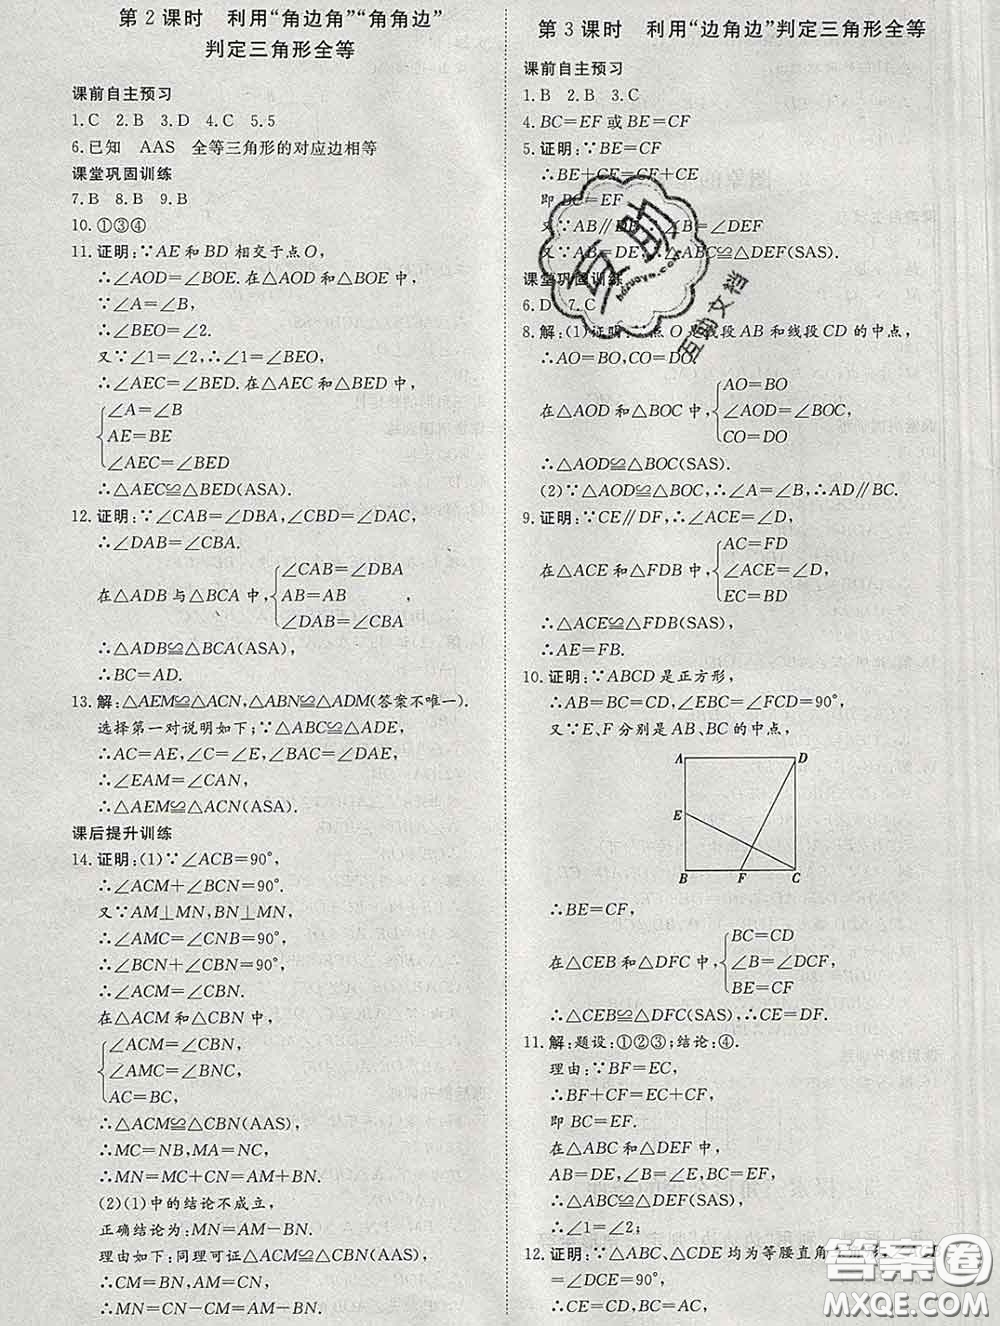 第2课时 利用“角边角”“角角边”
判定三角形全等
课前自主预习
1.C 2.B 3.D 4.C 5.5
6.已知 AAS 全等三角形的对应边相等
课堂巩固训练
7.B 8.B 9.B
10.①③④
11.证明:∵AE和BD相交于点O,
∴∠AOD=∠BOE.在△AOD和△BOE中,
∵∠A=∠B,
∴∠BEO=∠2.
又∵∠1=∠2,∴∠1=∠BEO,
∴∠AEC=∠BED.在△AEC和△BED中,
∠A=∠B
AE=BE
∠AEC=∠BED
∴△AEC≌△BED(ASA).
12.证明:∵∠CAB=∠DBA,∠CBD=∠DAC,
∴∠DAB=∠CBA.
在△ADB与△BCA中,
∠CAB=∠DBA
AB=AB
∠DAB=∠CBA
∴△ADB≌△BCA(ASA),
∴BC=AD.
13.解:△AEM≌△ACN,△ABN≌△ADM(答案不唯一).
选择第一对说明如下:∵△ABC≌△ADE,
∴AC=AE,∠C=∠E,∠BAC=∠DAE,
∴∠EAM=∠CAN,
∴△AEM≌△ACN(ASA).
课后提升训练
14.证明:(1)∵∠ACB=90°,
∴∠ACM+∠BCN=90°.
又∵AM⊥MN,BN⊥MN,
∴∠AMC=∠CNB=90°,
∴∠BCN+∠CBN=90°,
∴∠ACM=∠CBN.
在△ACM和△CBN中,
∠ACM=∠CBN,
∠AMC=∠BNC,
AC=BC,
∴△ACM≌△CBN(AAS),
∴MC=NB,MA=NC,
∴MN=MC+CN=AM+BN.
(2)(1)中的结论不成立,
正确结论为:MN=AM-BN.
理由如下:同理可证△ACM≌△CBN(AAS),
∴CM=BN,AM=CN,
∴MN=CN-CM=AM-BN.
第3课时 利用“边角边”判定三角形全等
课前自主预习
1.B 2.B 3.C
4.BC=EF或BE=CF
5.证明:∵BE=CF
∴BE+CE=CF+CE
即BC=EF
又∵AB∥DE,∴∠B=∠DEF
又∵AB=DE,∵△ABC≌△DEF(SAS).
课堂巩固训练
6.D 7.C
8.解:(1)证明:∵点O是线段AB和线段CD的中点,
∴AO=BO,CO=DO.
在△AOD和△BOC中,
AO=BO
∠AOD=∠BOC,
CO=DO
∴△AOD≌△BOC(SAS).
(2)∵△AOD≌△BOC,∴AD∥BC.
9.证明:∵CE∥DF,∴∠ACE=∠D,
在△ACE和△FDB中,
AC=FD
∠ACE=∠D,
EC=BD
∴△ACE≌△FDB(SAS),
∴AE=FB.
10.证明:∵ABCD是正方形,
∴AB=BC=CD,∠EBC=∠FCD=90°,
又∵E、F分别是AB、BC的中点,
A D
E
B F C
∴BE=CF,
在△CEB和△DFC中,
BC=CD
∠B=∠DCF,
BE=CF
∴△CEB≌△DFC(SAS),∴CE=DF.
11.解:题设:①②③;结论:④.
理由:∵BF=EC,
∴BF+CF=EC+CF,
即BC=EF.
在△ABC和△DEF中,
AB=DE,∠B=∠E,BC=EF,
∴△ABC≌△DEF(SAS),
∴∠1=∠2;
12.证明:∵△ABC、△CDE均为等腰直角
=∠DCE=90°,
∴CE=CD,BC=AC,
互助
hdzuoye.com
互助文档
答案圈
MXQE.COM